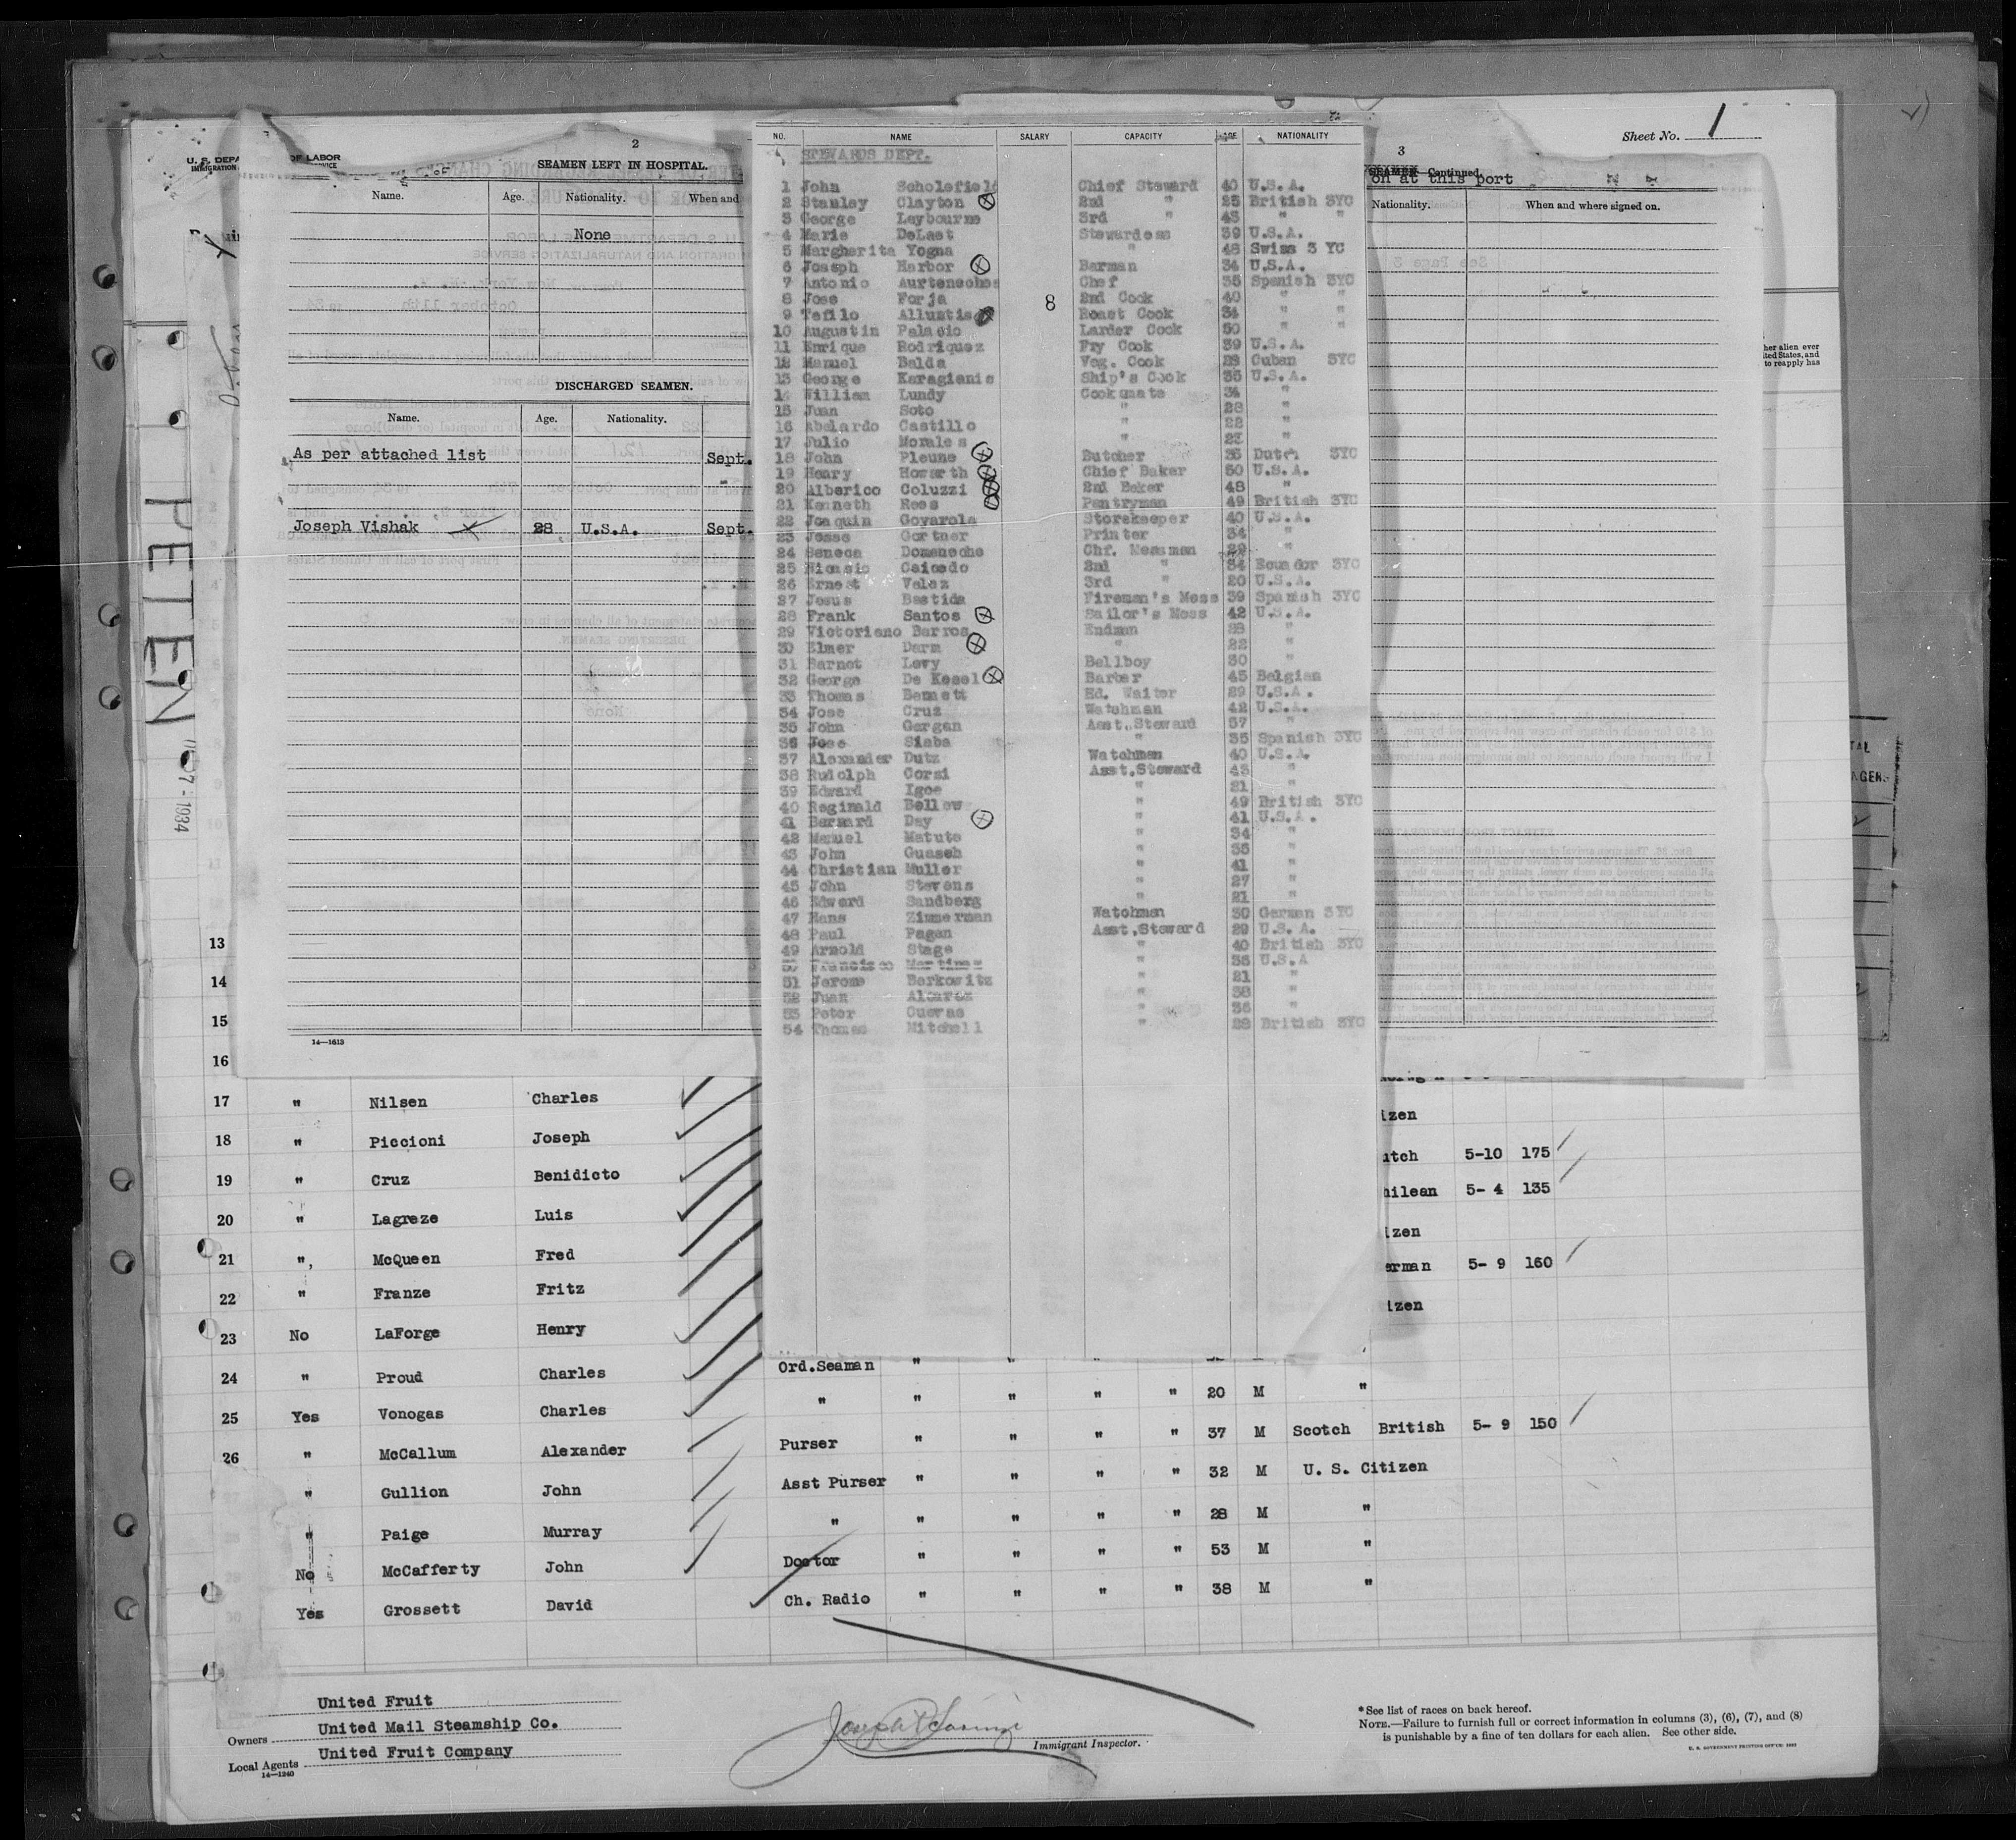 Sheet No. 1
U. S. DEPA
OF LABOR
IMMIGRATION
2
SEAMEN LEFT IN HOSPITAL.
Name. Age. Nationality. When and
None
DISCHARGED SEAMEN.
Name. Age. Nationality.
As per attached list Sept.
Joseph Vishak 28 U.S.A. Sept.
14—1613
PETEN
7-1934
NO. NAME SALARY CAPACITY AGE NATIONALITY
STEWARDS DEPT.
1 John Scholefield Chief Steward 40 U.S.A.
2 Stanley Clayton 2nd " 25 British 3YC
3 George Leybourne 3rd " 43 " "
4 Marie DeLast Stewardess 39 U.S.A.
5 Margherita Yogna " 48 Swiss 3 YC
6 Joseph Harbor Barman 34 U.S.A.
7 Antonio Chef 35 Spanish 3YC
8 Jose Forja 8 2nd Cook 40 " "
9 Roast Cook 34 " "
10 Augustin Palacio Larder Cook 50 " "
11 Enrique Rodriquez Fry Cook 39 U.S.A.
12 Manuel Balda Veg. Cook Cuban 3YC
13 George Karagianis Ship's Cook 35 U.S.A.
14 William Lundy Cookmate 34 "
15 Juan Soto " 28 "
16 Abelardo Castillo " 22 "
17 Julio Morales " 23 "
18 John Pleune Butcher Dutch 3YC
19 Henry Howarth Chief Baker 50 U.S.A.
20 Alberico Coluzzi 2nd Baker 48 "
21 Kenneth Rees Pantryman 49 British 3YC
22 Joaquin Goyarola Storekeeper 40 U.S.A.
23 Jesse Gortner Printer 34 "
24 Seneca Domeneche Chf. Messman "
25 Nicasio Caicedo 2nd " 34 Ecuador 3YC
26 Ernest Velez 3rd " 20 U.S.A.
27 Jesus Bastida Fireman's Mess 39 Spanish 3YC
28 Frank Santos Sailor's Mess 42 U.S.A.
29 Victoriano Barros Endman "
30 Elmer Darm " 22 "
31 Barnet Levy Bellboy 30 "
32 George De Kesel Barber 45 Belgian
33 Thomas Bennett Hd. Waiter 29 U.S.A.
34 Jose Cruz Watchman 42 U.S.A.
35 John Gargan Asst.Steward 37 "
36 Jose Siaba " 35 Spanish 3YC
37 Alexander Dutz Watchman 40 U.S.A.
38 Rudolph Corsi Asst.Steward 43 "
39 Edward Igoe " 21 "
40 Reginald Bellow " 49 British 3YC
41 Bernard Day " 41 U.S.A.
42 Manuel Matute " 34 "
43 John Guasch " 35 "
44 Christian Muller " 41 "
45 John Stevens " 27 "
46 Edward Sandberg " 21 "
47 Hans Zimmerman Watchman 30 German 3YC
48 Paul Pagan Asst.Steward 29 U.S.A.
49 Arnold Stage " 40 British 3YC
50 Francisco Martinez " 36 U.S.A
51 Jerome Berkowitz " 21 "
52 Juan Alvarez " 38 "
53 Peter Cuevas " 36 "
54 Thomas Mitchell " 28 British 3YC
3
SEAMEN—Continued
on at this port
Nationality. When and where signed on.
her alien ever
ited States, and
to reapply has
13
14
15
16
17 " Nilsen Charles izen
18 " Piccioni Joseph utch 5-10 175
19 " Cruz Benidicto hilean 5- 4 135
20 " Lagreze Luis izen
21 ", McQueen Fred erman 5- 9 160
22 " Franze Fritz izen
23 No LaForge Henry Ord.Seaman " " "
24 " Proud Charles " " " " " 20 M "
25 Yes Vonogas Charles Purser " " " " 37 M Scotch British 5- 9 150
26 " McCallum Alexander Asst Purser " " " " 32 M U. S. Citizen
" Gullion John " " " " " 28 M "
" Paige Murray Doctor " " " " 53 M "
No McCafferty John Ch. Radio " " " " 38 M "
Yes Grossett David
United Fruit
Owners United Mail Steamship Co.
Local Agents United Fruit Company
14—1240
Immigrant Inspector.
* See list of races on back hereof.
NOTE.—Failure to furnish full or correct information in columns (3), (6), (7), and (8)
is punishable by a fine of ten dollars for each alien. See other side.